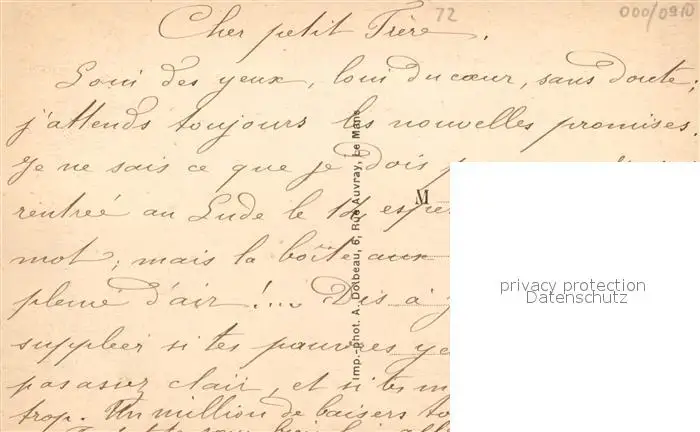 72
000/0910
Cher petit Frère,
Loin des yeux, loin du cœur, sans doute;
j'attends toujours les nouvelles promises.
Je ne sais ce que je dois
rentrée au Lude le 14,
mot; mais la boîte aux
pleine d'air !...
Dis à
supplier si tes pauvres
pas assez clair, et si tes
trop. Un million de baisers
M
Imp.-phot. A. Dolbeau, 6, Rue Auvray, Le Mans
privacy protection
Datenschutz